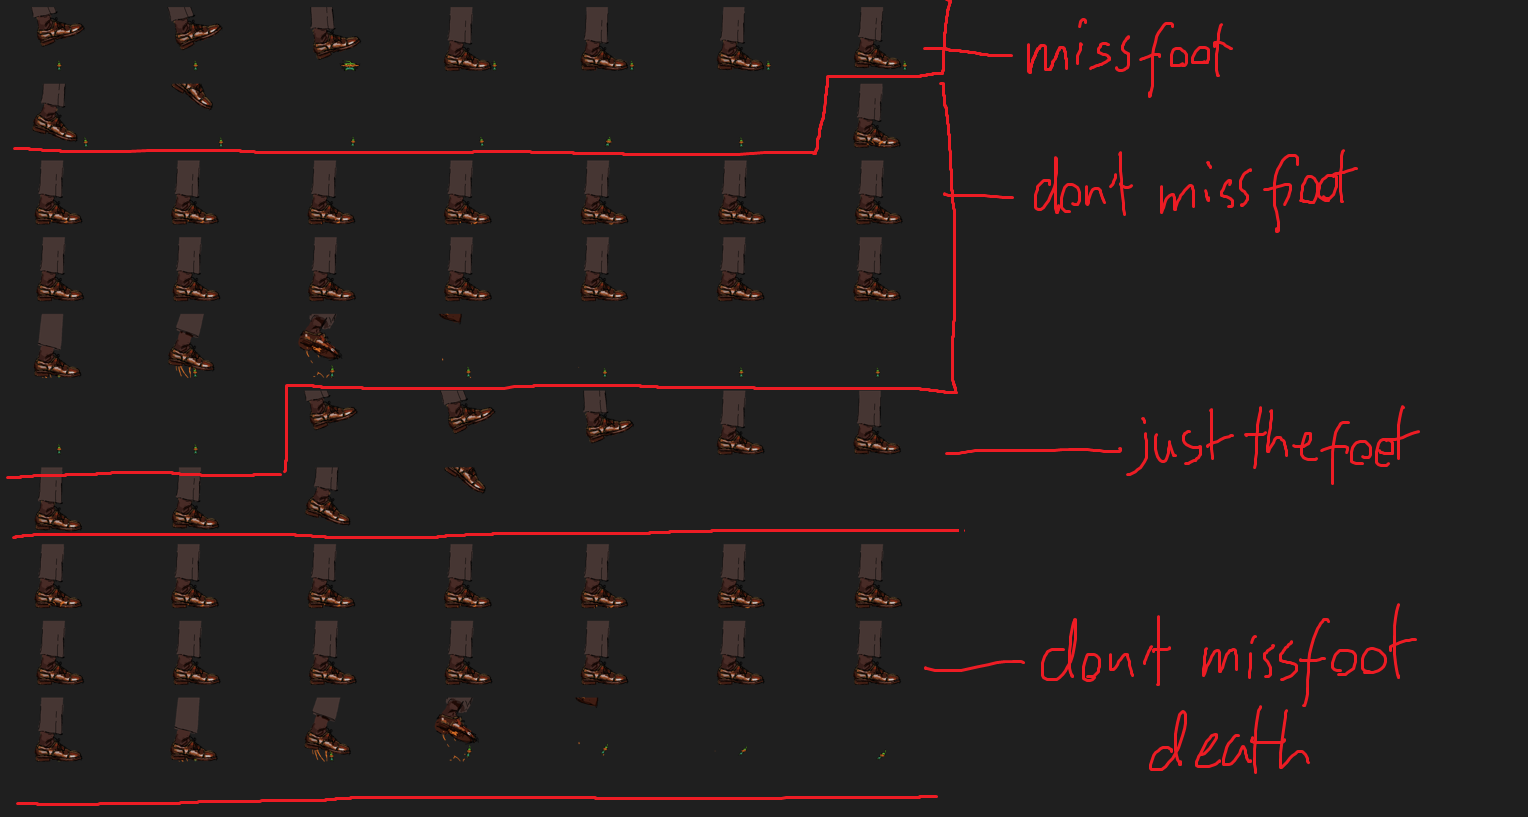 missfoot
don't missfoot
just the foot
don't missfoot
death